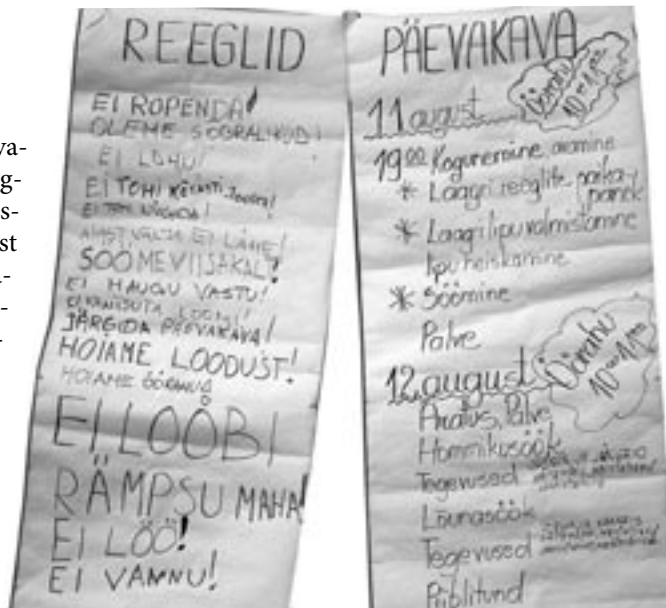 va-
g-
s-
st
-
-
-
REEGLID
EI ROPENDA!
OLEME SÕBRALIKUD!
EI LÕHU!
EI TOHI
EI TOHI
EI LÄHE!
SÖÖME VIISAKALT!
EI HAUGU VASTU!
EI KIUSATA LOOMI!
JÄRGIDA PÄEVAKAVA!
HOIAME LOODUST!
HOIAME
EI LOOBI
RÄMPSU MAHA!
EI LÖÖ!
EI VANNU!
PÄEVAKAVA
11 august
Öörahu
10⁰⁰
19⁰⁰ Kogunemine, avamine
* Laagri reeglite paika-
panek
* Laagrilipu valmistamine
lipu heiskamine
* Söömine
Palve
12 august
Öörahu
10⁰⁰
Äratus, Palve
Hommikusöök
Tegevused
Lõunasöök
Tegevused
Piiblitund